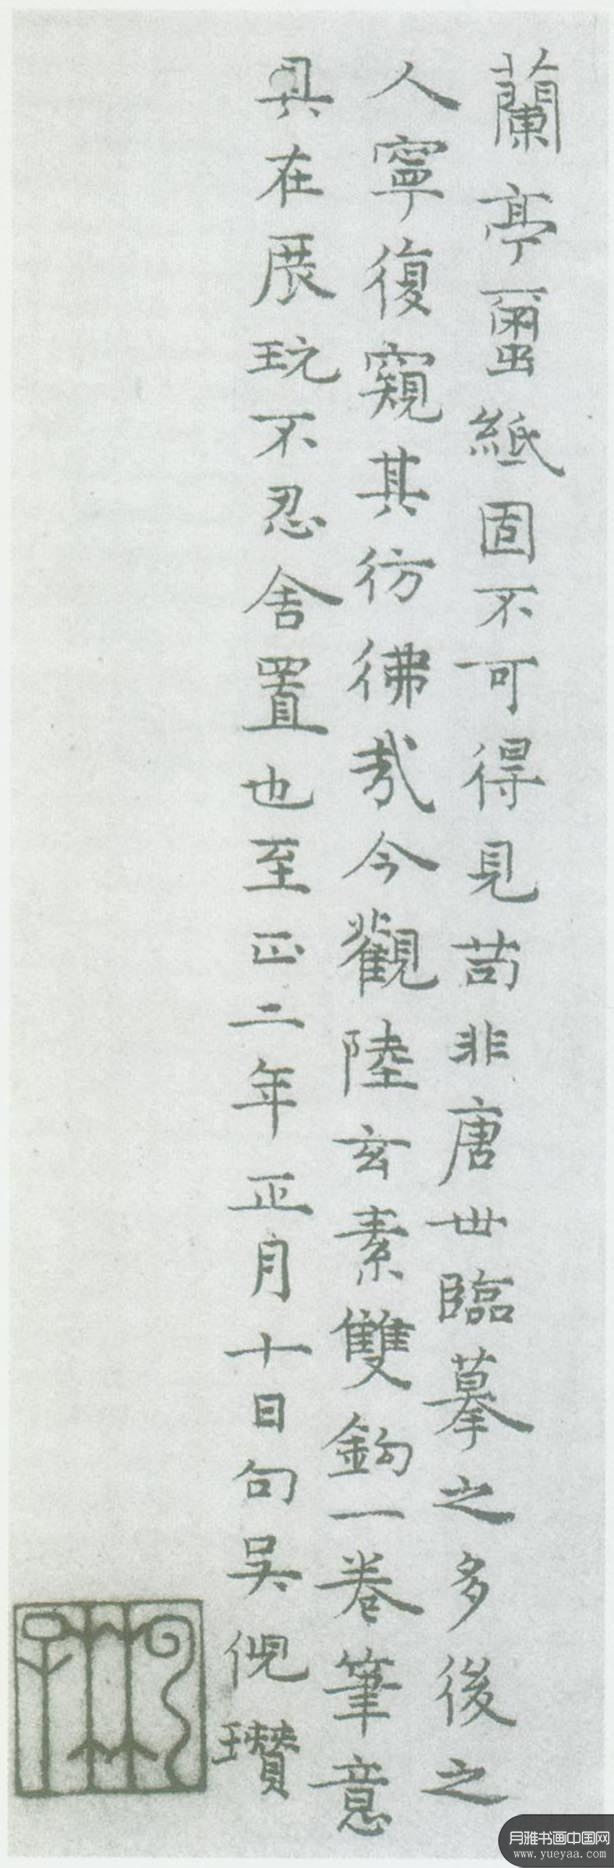 蘭亭璽紙固不可得見苟非唐世臨摹之多後之
人寧復窺其彷彿哉今觀陸玄素雙鈎一卷筆意
具在展玩不忍舍置也至正二年正月十日句吳倪瓚
月雅书画中国网
www.yueyaa.com